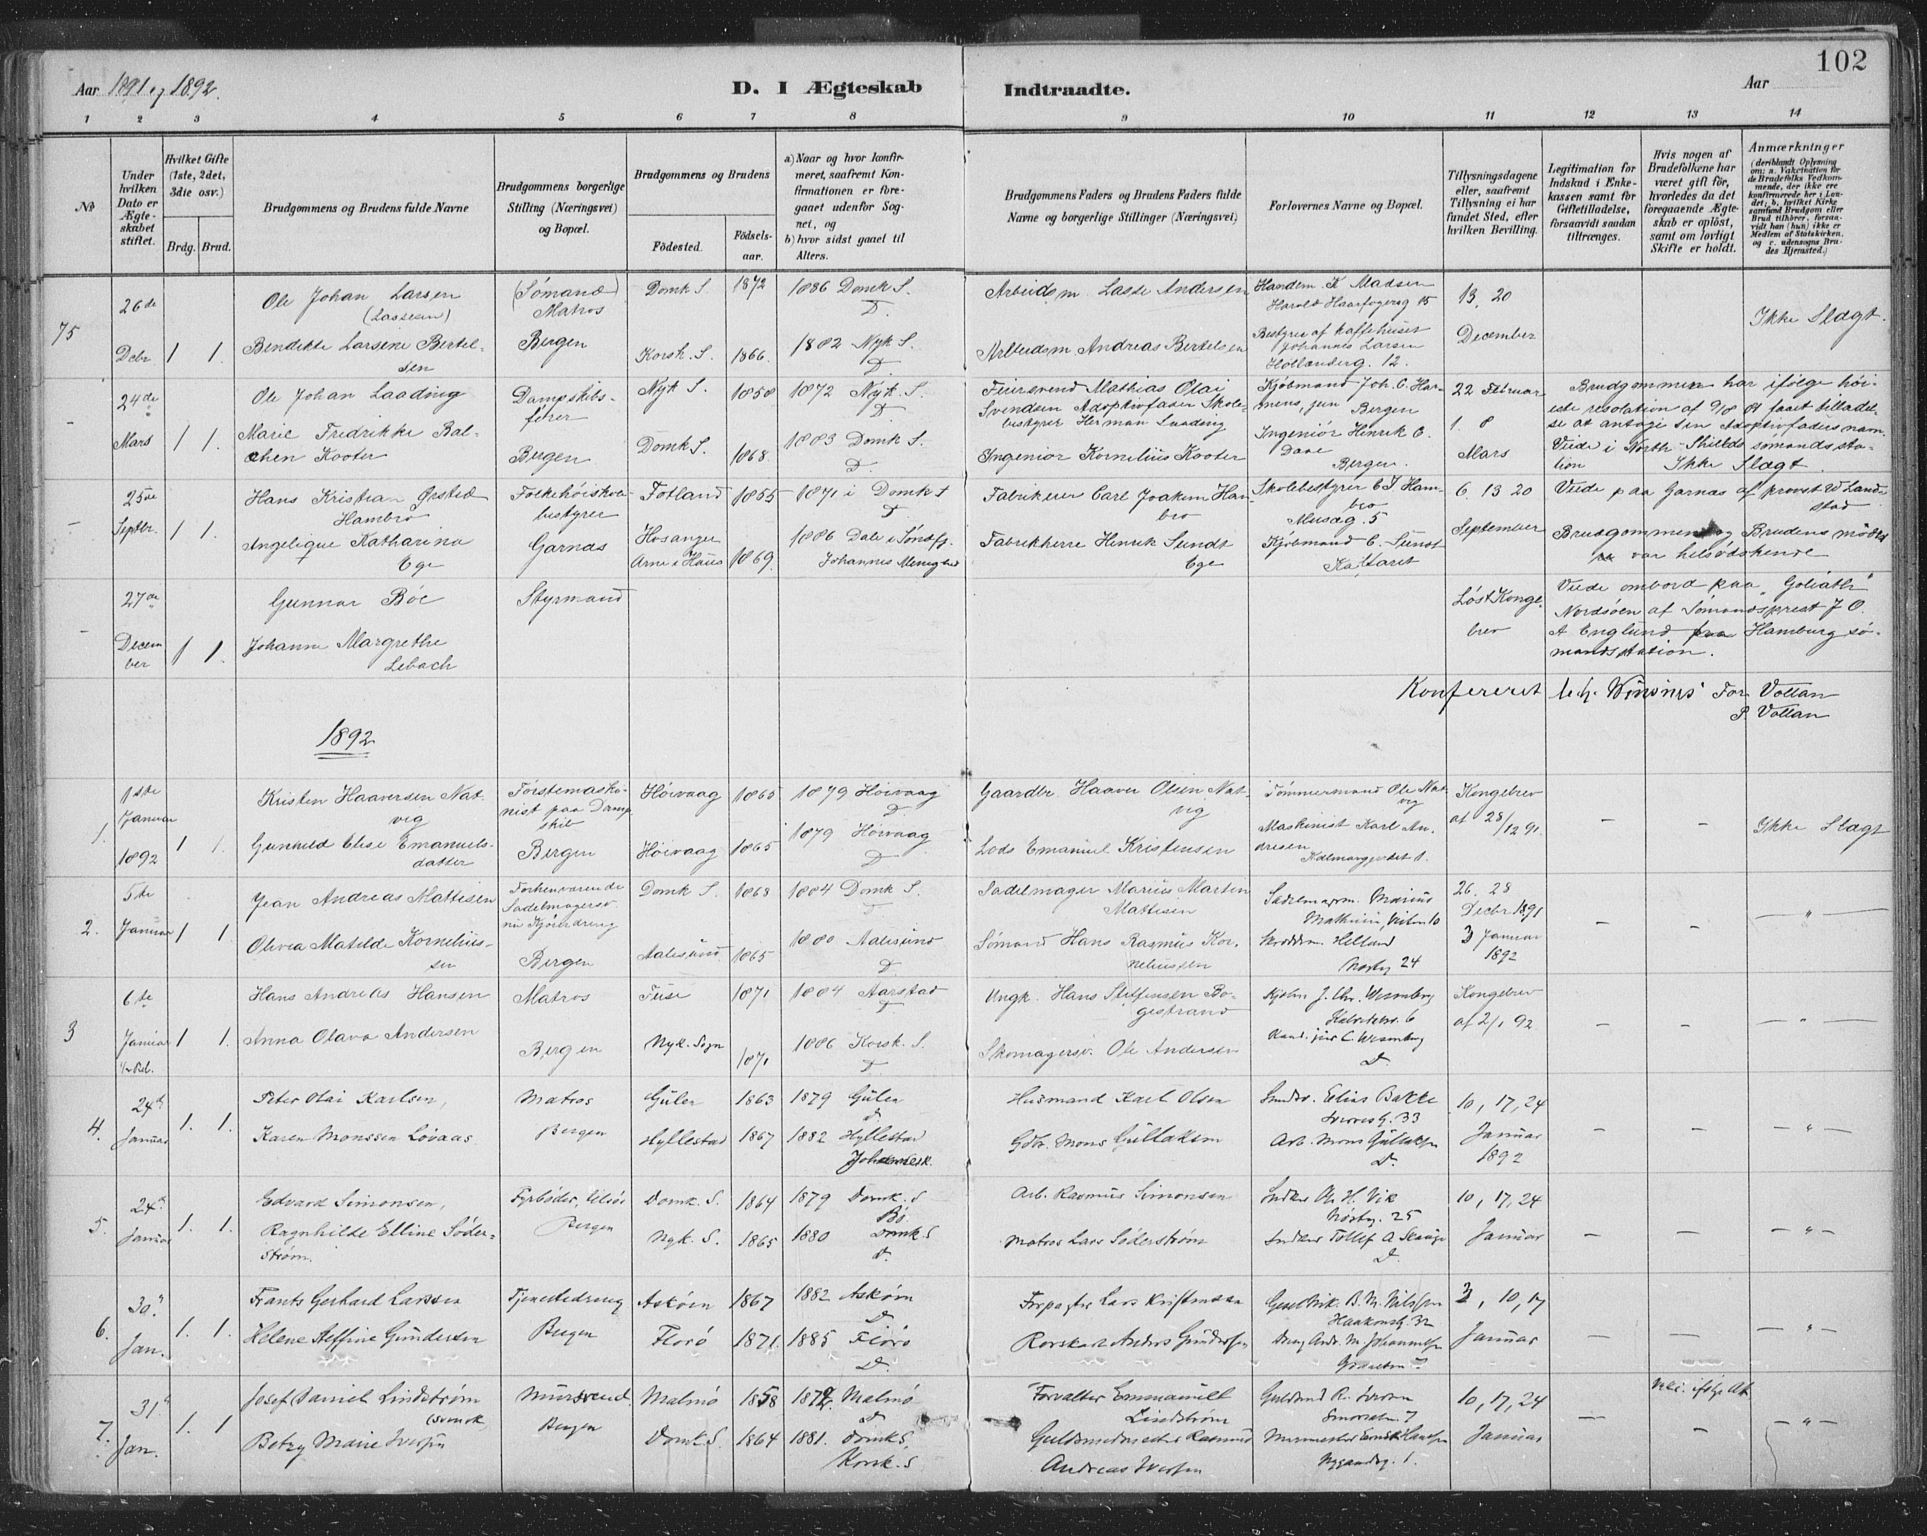 102
Aar 1891 og 1892.
D. I Ægteskab Indtraadte.
Aar
1 2 3 4 5 6 7 8 9 10 11 12 13 14
No
Under hvilken Dato er Ægteskabet stiftet.
Hvilket Gifte (1ste, 2det, 3die osv.)
Brdg. Brud.
Brudgommens og Brudens fulde Navne
Brudgommens borgerlige Stilling (Næringsvei) og Bopæl.
Brudgommens og Brudens
Fødested. Fødselsaar.
a) Naar og hvor konfirmeret, saafremt Konfirmationen er foregaaet udenfor Sognet, og
b) hvor sidst gaaet til Alters.
Brudgommens Faders og Brudens Faders fulde Navne og borgerlige Stillinger (Næringsvei)
Forlovernes Navne og Bopæl.
Tillysningsdagene eller, saafremt Tillysning ei har fundet Sted, efter hvilken Bevilling.
Legitimation for Indskud i Enkekassen samt for Giftetilladelse, forsaavidt saadan tiltrænges.
Hvis nogen af Brudefolkene har været gift før, hvorledes da det foregaaende Ægteskab er opløst, samt om lovligt Skifte er holdt.
Anmærkninger
(deriblandt Oplysning om: a. Vakcination for de Brudefolks Vedkommende, der ikke ere konfirmerede her i Landet; b. hvilket Kirkesamfund Brudgom eller Brud tilhører, forsaavidt han (hun) ikke er Medlem af Statskirken, og c. udensogns Brudes Hjemsted.)
75
26de
Debr 1 1.
Ole Johan Larsen
(Lassesen)
Bendikte Larsine Bertelsen
(Sømand)
Matros
Bergen
Domk S. 1872
Korsk. S. 1866.
1886 Domk S.
D.
1882 Nyk S.
D.
Arbeidsm. Lasse Andersen
Arbeidsm Andreas Bertelsen
Handelm. K Madsen
Harald Haarfagersg 15
Bestyrer af kaffehuset
Johannes Larsen
Hollænderg. 12.
13. 20
December
Ikke Slægt.
-
24de
Mars 1 1.
Ole Johan Laading
Marie Fredrikke Balchen Kooter
Dampskibsfører
Bergen
Nyk S. 1858
Domk S. 1868.
1872 Nyk S.
D
1883 Domk S.
D
Feiersvend Mathias Olai
Svendsen Adoptivfader Skolebestyrer Herman Laading
Ingeniør Kornelius Kooter
Kjøbmand Joh. C Harmens, jun
Bergen
Ingeniør Henrik C.
Daae
Bergen.
22 Februar
1. 8
Mars
Brudgommen har ifølge høieste resolation af 9/8 81 faaet tilladelse at antage sin Adoptivfaders navn.
Viede i North-Shields sømandsstation
Ikke Slægt.
-
25de
Septbr. 1 1.
Hans Kristian Ørsted
Hambro
Angelique Katharina
Ege
Folkehøiskolebestyrer
Garnæs
Fotland 1855
Hosanger
Arne i Haus 1869.
1871 i Domk S
D
1886 Dale i Søndfj.
Johannes Menighed
Fabrikeier Carl Joakim Hambro
Fabrikherre Henrik Sundt
Ege
Skolebestyrer C J. Hambro
Musæg. 5
Kjøbmand C. Sundt
Kalfaret
6. 13 20
September
Viede paa Garnæs af provst W Landstad
Brudgommens og Brudens mødre var helsødskende
-
27de
December 1 1.
Gunnar Böe
Johanne Margrethe
Lebach
Styrmand
Løst Kongebrev
Viede ombord paa "Goliath"
Nordsøen af Sømandsprest J O.
A Englund Hamburg sømandsstation.
Konfereret Winsnes For Vollan
P. Vollan
1892
1.
1ste
Januar
1892 1 1.
Kristen Haaversen Natvig
Gunhild Elise Emanuelsdatter
Førstemaskinist paa Dampskib
Bergen
Høivaag 1865
Høivaag 1865
1879 Høivaag
D
1879 Høivaag
D
Gaardbr. Haaver Olsen Natvig
Lods Emanuel Kristensen
Tømmermand Ole Natvig
Maskinist Karl Andresen
Kongebrev
af 28/12 91.
- -
Ikke Slægt
2.
5te
Januar 1 1
Jean Andreas Mattisen
Olivia Matilde Korneliussen
Forhenværende
Sadelmagersv
nu Kjøredreng
Bergen
Domk S. 1868
Aalesund 1865
1884 Domk S.
D
1880 Aalesund
D
Sadelmager Marius Martin
Mattisen
Sømand Hans Rasmus Korneliussen
Sadelmagerm. Marius
Skræddm. Helland
Nøstg 24
26. 28
Decbr 1891
3 Januar
1892
- - — " —
3
6te
Januar 1 1.
Hans Andreas Hansen
Anna Olava Andersen
Matros
Bergen
Fuse 1871
Nyk. Sogn 1871
1884 Aarstad
D
1886 Korsk. S.
D.
Ungk. Hans Steffensen Bogestrand
Skomagersv. Ole Andersen
Kjøbm J. Chr. Wesenberg
Kand. jur C. Wesenberg
D
Kongebrev
af 2/1 92
- - — " —
4.
24de
Januar 1. 1.
Peter Olai Karlsen,
Karen Monssen Løvaas
Matros
Bergen
Gulen 1863
Hyllestad 1867
1879 Gulen
D
1882 Hyllestad
Johannesk.
Husmand Karl Olsen
Gdbr. Mons Guttaksen
Snedker. Elias Bakke
33
Arb. Mons Guttaksen
D.
10, 17, 24
Januar
1892
- - — " —
5.
24de
Januar 1. 1.
Edvard Simonsen,
Ragnhilde Elline Söderström.
Fyrbøder,
Bergen
Domk. S. 1864
Nyk. S. 1865
1879 Domk. S
Bö.
1880 Domk S
D.
Arb. Rasmus Simonsen
Matros Lars Söderström
Snedker Ole H. Vik
Nøstg. 25
Snedker Tollef A
D
10, 17, 24
Januar
- - — " —
6.
30te
Jan. 1. 1.
Frants Gerhard Larssen
Helene Steffine Gundersen
Tjenestedreng
Bergen
Askøen 1867
Florø 1871.
1882 Askøen
D
1885 Florø
D.
Forpagter Lars Kristensen
Rorskarl Anders Gundersen
B. M. Nilssen
Haakonsg 32
Andr. M. Johannessen
3, 10, 17
Januar
- - — " —
7.
31te
Jan. 1. 1
Josef Daniel Lindström
(svensk)
Betzy Marie Iversen
Mursvend
Bergen
Malmø 1858
Domk. S. 1864
1872 Malmø
D
1881. Domk S,
Korsk. S
Forvalter Emmanuel
Lindström
Guldsmedmester Rasmus
Andreas Iversen
Guldsmed R. Iversen
7
Murmester Ernst Hansen
Nygaardsg. 1.
10, 17, 24
Januar
-
-
— " —